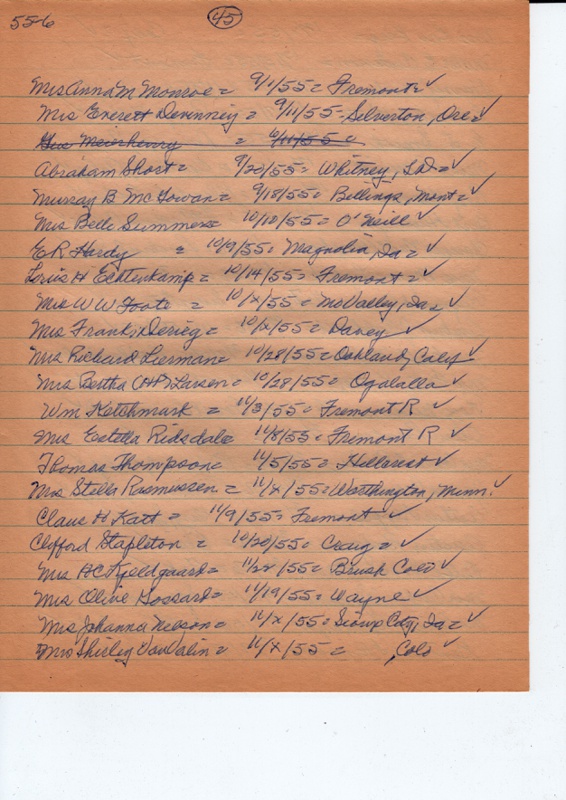 55-6 45
Mrs Anna M Monroe = 9/1/55 = Fremont = ✓
Mrs Everett Devinney = 9/11/55 - Silverton, Ore = ✓
Geo Meierhenry = 6/11/55 =
Abraham Short = 9/20/55 = Whitney, = ✓
Murray B McGowan = 9/18/55 = Billings, Mont = ✓
Mrs Belle Summers = 10/10/55 = O'Neill ✓
E R Hardy = 10/9/55 = Magnolia, Ia = ✓
Louis H Echtenkamp = 10/14/55 = Fremont = ✓
Mrs W W Foote = 10/x/55 = Mo Valley, Ia = ✓
Mrs Frank Derieg = 10/x/55 = Davey ✓
Mrs Richard Lierman = 10/28/55 = Oakland, Calif ✓
Mrs Bertha (HP) Larsen = 10/28/55 = Ogalalla ✓
Wm Ketchmark = 11/3/55 = Fremont R ✓
Mrs Estella Ridsdale = 11/8/55 = Fremont R ✓
Thomas Thompson = 11/5/55 = Hillcrest ✓
Mrs Stella Rasmussen = 11/x/55 = Worthington, Minn. ✓
Claus H Katt = 11/9/55 = Fremont ✓
Clifford Stapleton = 10/20/55 = Craig = ✓
Mrs H C Kjeldgaard = 11/22/55 = Brush Colo ✓
Mrs Olive Gossard = 11/19/55 = Wayne ✓
Mrs Johanna Nelson = 11/x/55 = Sioux City, Ia = ✓
Mrs Shirley VanValin = 11/x/55 = , Colo ✓